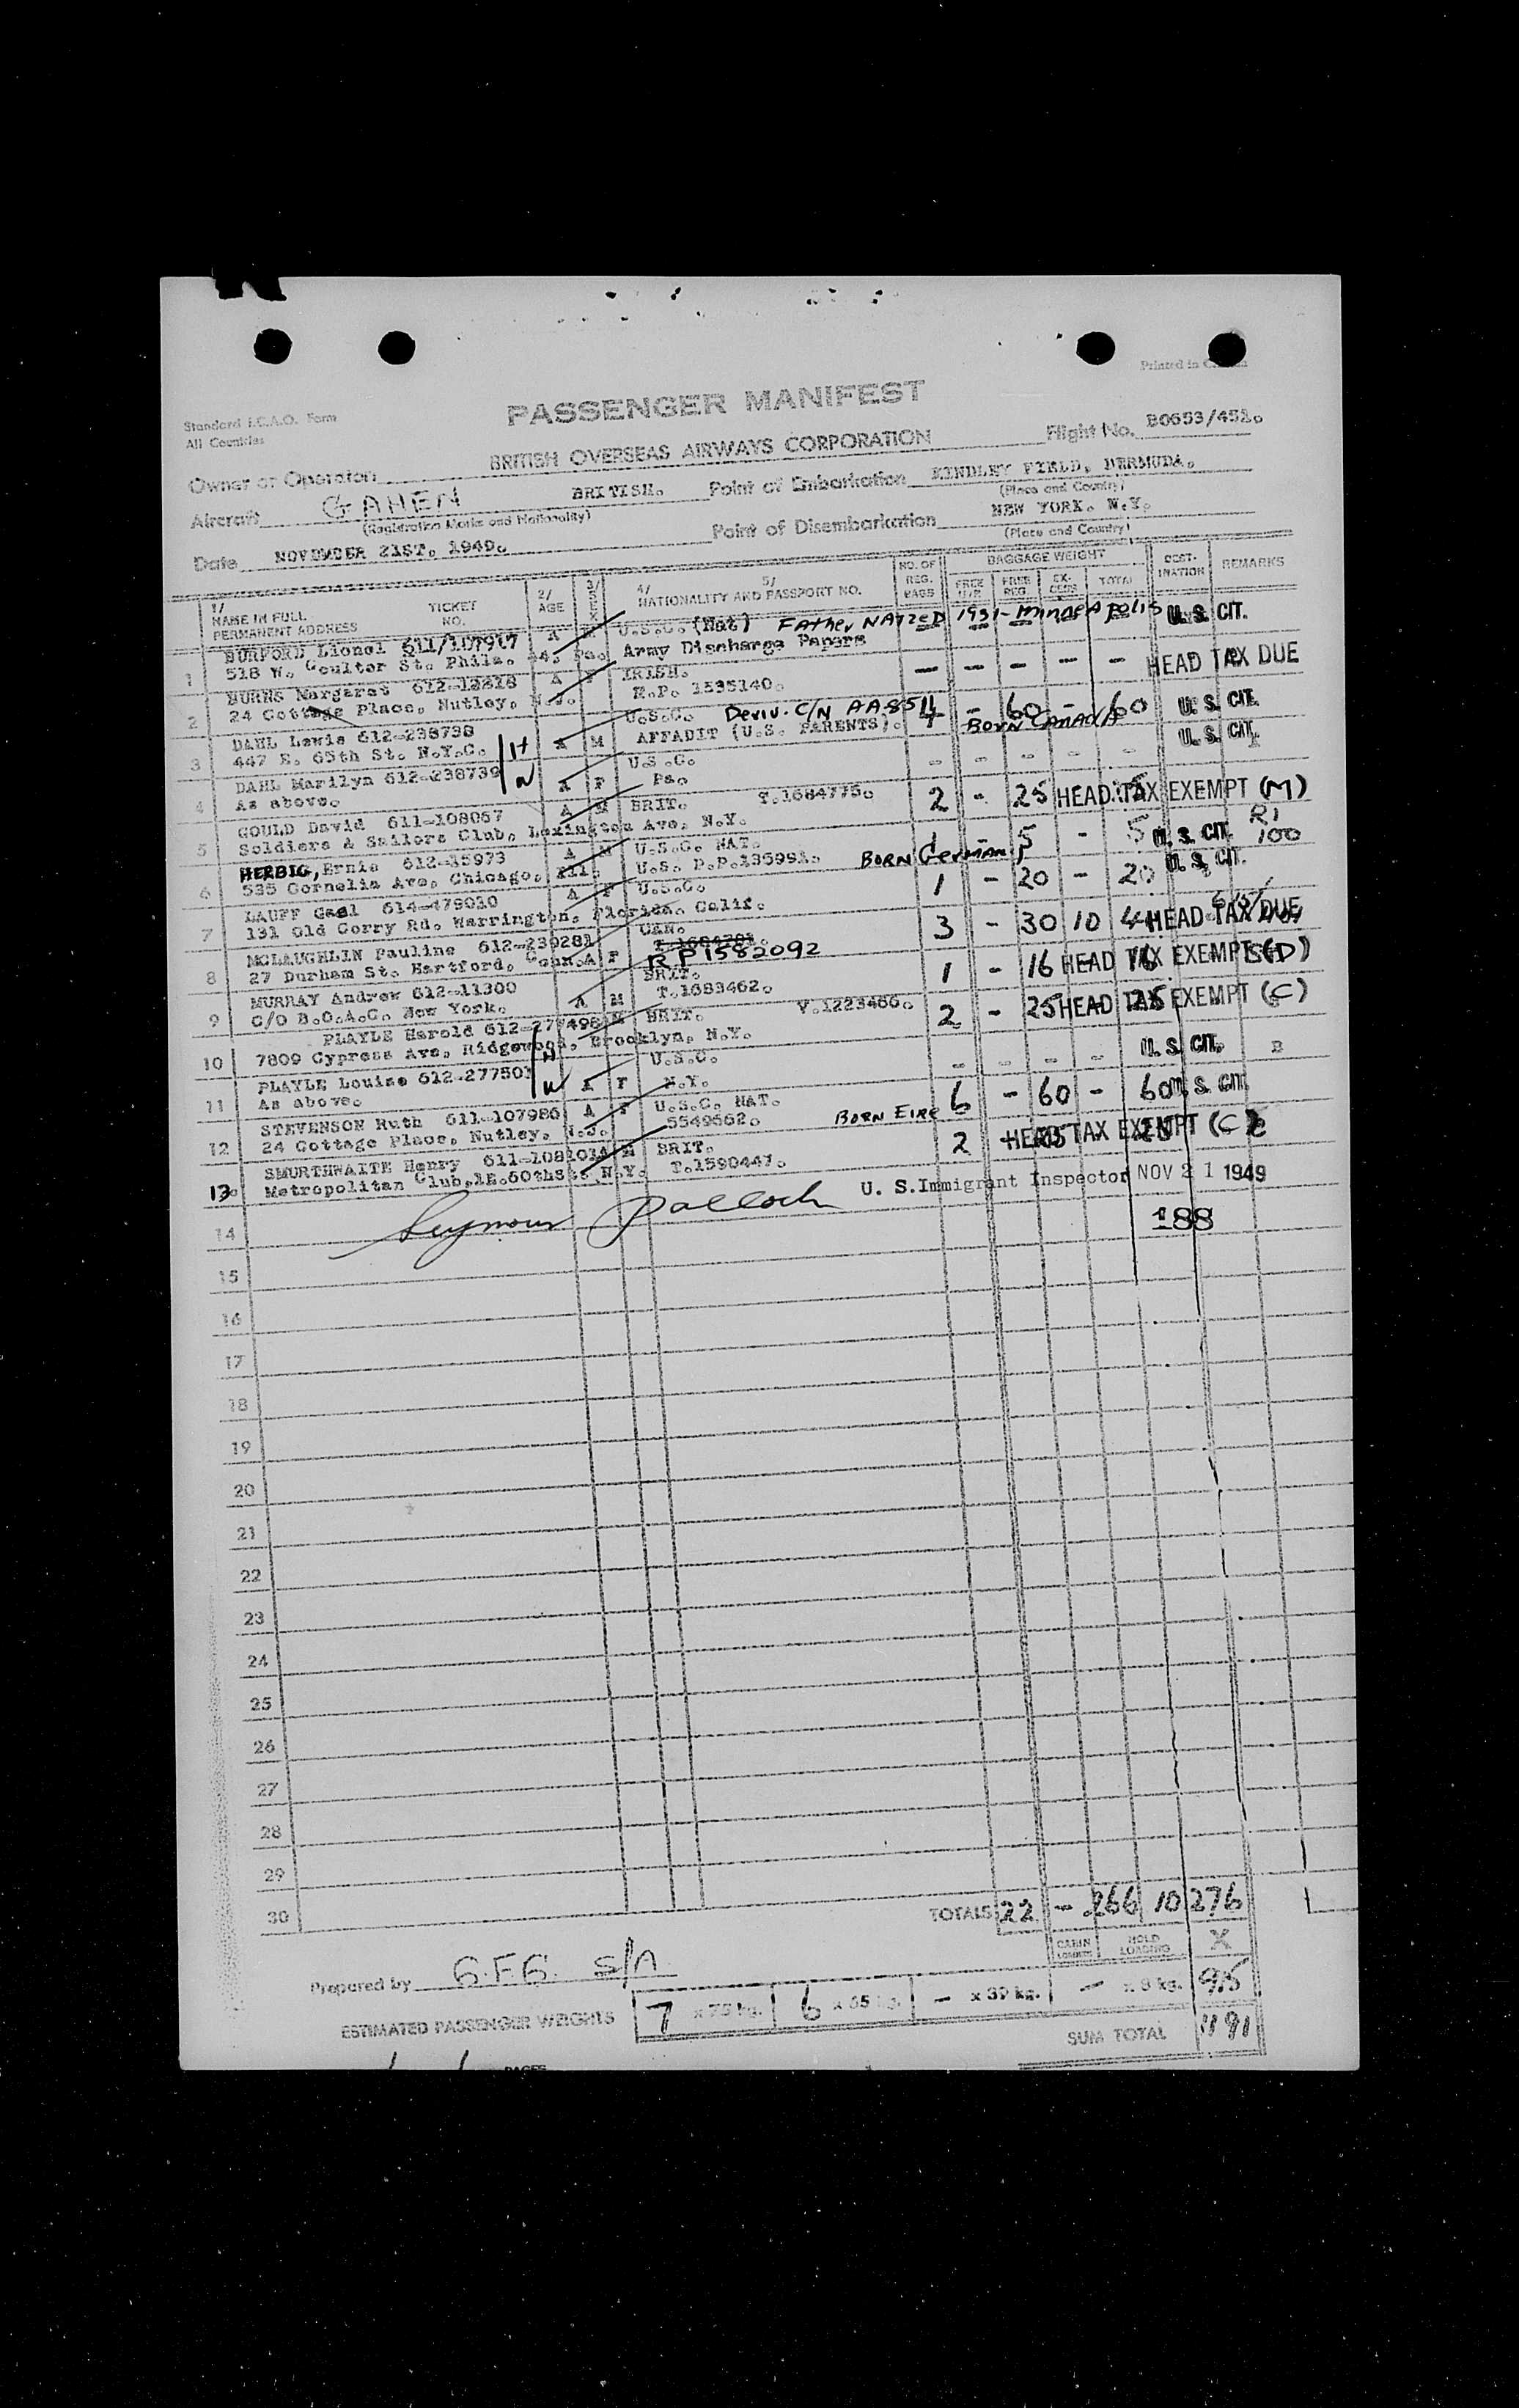 Printed in
Standard I.C.A.O. Form
All Countries
PASSENGER MANIFEST
Owner or Operator BRITISH OVERSEAS AIRWAYS CORPORATION Flight No. B0653/451.
Aircraft G AHEN BRITISH. Point of Embarkation KINDLEY FIELD, BERMUDA.
(Registration Marks and Nationality) (Place and Country)
Date NOVEMBER 21ST. 1949. Point of Disembarkation NEW YORK. N.Y.
(Place and Country)
1/ NAME IN FULL PERMANENT ADDRESS TICKET NO. 2/ AGE 3/ SEX 4/ 5/ NATIONALITY AND PASSPORT NO. NO. OF REG. BAGS BAGGAGE WEIGHT FREE FREE REG. EX-CESS TOTAL DEST-INATION REMARKS
1 BURFORD Lionel 611/107967 A U.S.C. (Nat) Father NATZED 1931 - MinneApolis U.S. CIT.
518 W. Coulter St. Phila. 44. Pa. Army Discharge Papers
2 BURNS Margaret 612-12218 A F IRISH. - - - - - HEAD TAX DUE
24 Cottage Place, Nutley, N.J. N.P. 1535140.
3 DAHL Lewis 612-238738 H A M U.S.C. Deriv. C/N AA8511 4 - 60 - 60 U.S. CIT.
447 E. 65th St. N.Y.C. AFFADIT (U.S. PARENTS). BORN CANADA
4 DAHL Marilyn 612-238739 W A F U.S.C. - - - - - U.S. CIT.
As above. Pa.
5 GOULD David 611-108067 A M BRIT. T.1684775. 2 - 25 HEAD TAX EXEMPT (M)
Soldiers & Sailors Club, Lexington Ave, N.Y.
6 HERBIG, Ernie 612-15973 A M U.S.C. NAT. 1 - 5 - 5 U.S. CIT. R1 100
535 Cornelia Ave, Chicago, Ill. U.S. P.P.135991. BORN GERMANY
7 LAUFF Gael 614-479010 A F U.S.C. 1 - 20 - 20 U.S. CIT.
131 Old Corry Rd. Warrington, Florida. Calif.
8 MCLAUGHLIN Pauline 612-239281 A F CAN. 3 - 30 10 4 HEAD TAX DUE
27 Durham St. Hartford, Conn. RP1582092
9 MURRAY Andrew 612-11300 A M BRIT. 1 - 16 HEAD TAX EXEMPT (D)
C/O B.O.A.C. New York. T.1683462.
10 PLAYLE Harold 612-277498 M BRIT. V.1223466. 2 - 25 HEAD TAX EXEMPT (C)
7809 Cypress Ave, Ridgewood, Brooklyn, N.Y. H
11 PLAYLE Louise 612-277501 W A F U.S.C. - - - - U.S. CIT. B
As above. N.Y.
12 STEVENSON Ruth 611-107986 A F U.S.C. NAT. BORN EIRE 6 - 60 - 60 U.S. CIT.
24 Cottage Place, Nutley, N.J. 5549562.
13. SMURTHWAITE Henry 611-108101 A M BRIT. 2 HEAD TAX EXEMPT (C)
Metropolitan Club, 1E. 60thSt. N.Y. T.1590447.
14 Seymour Pollock U. S. Immigrant Inspector NOV 21 1949
188
15
16
17
18
19
20
21
22
23
24
25
26
27
28
29
30 TOTALS 22 - 266 10 276
CABIN HOLD LOADING X
Prepared by G.F.G. S/A
ESTIMATED PASSENGER WEIGHTS 7 x 75 kg. 6 x 65 kg. - x 39 kg. - x 8 kg. 915
SUM TOTAL 1191
PAGES